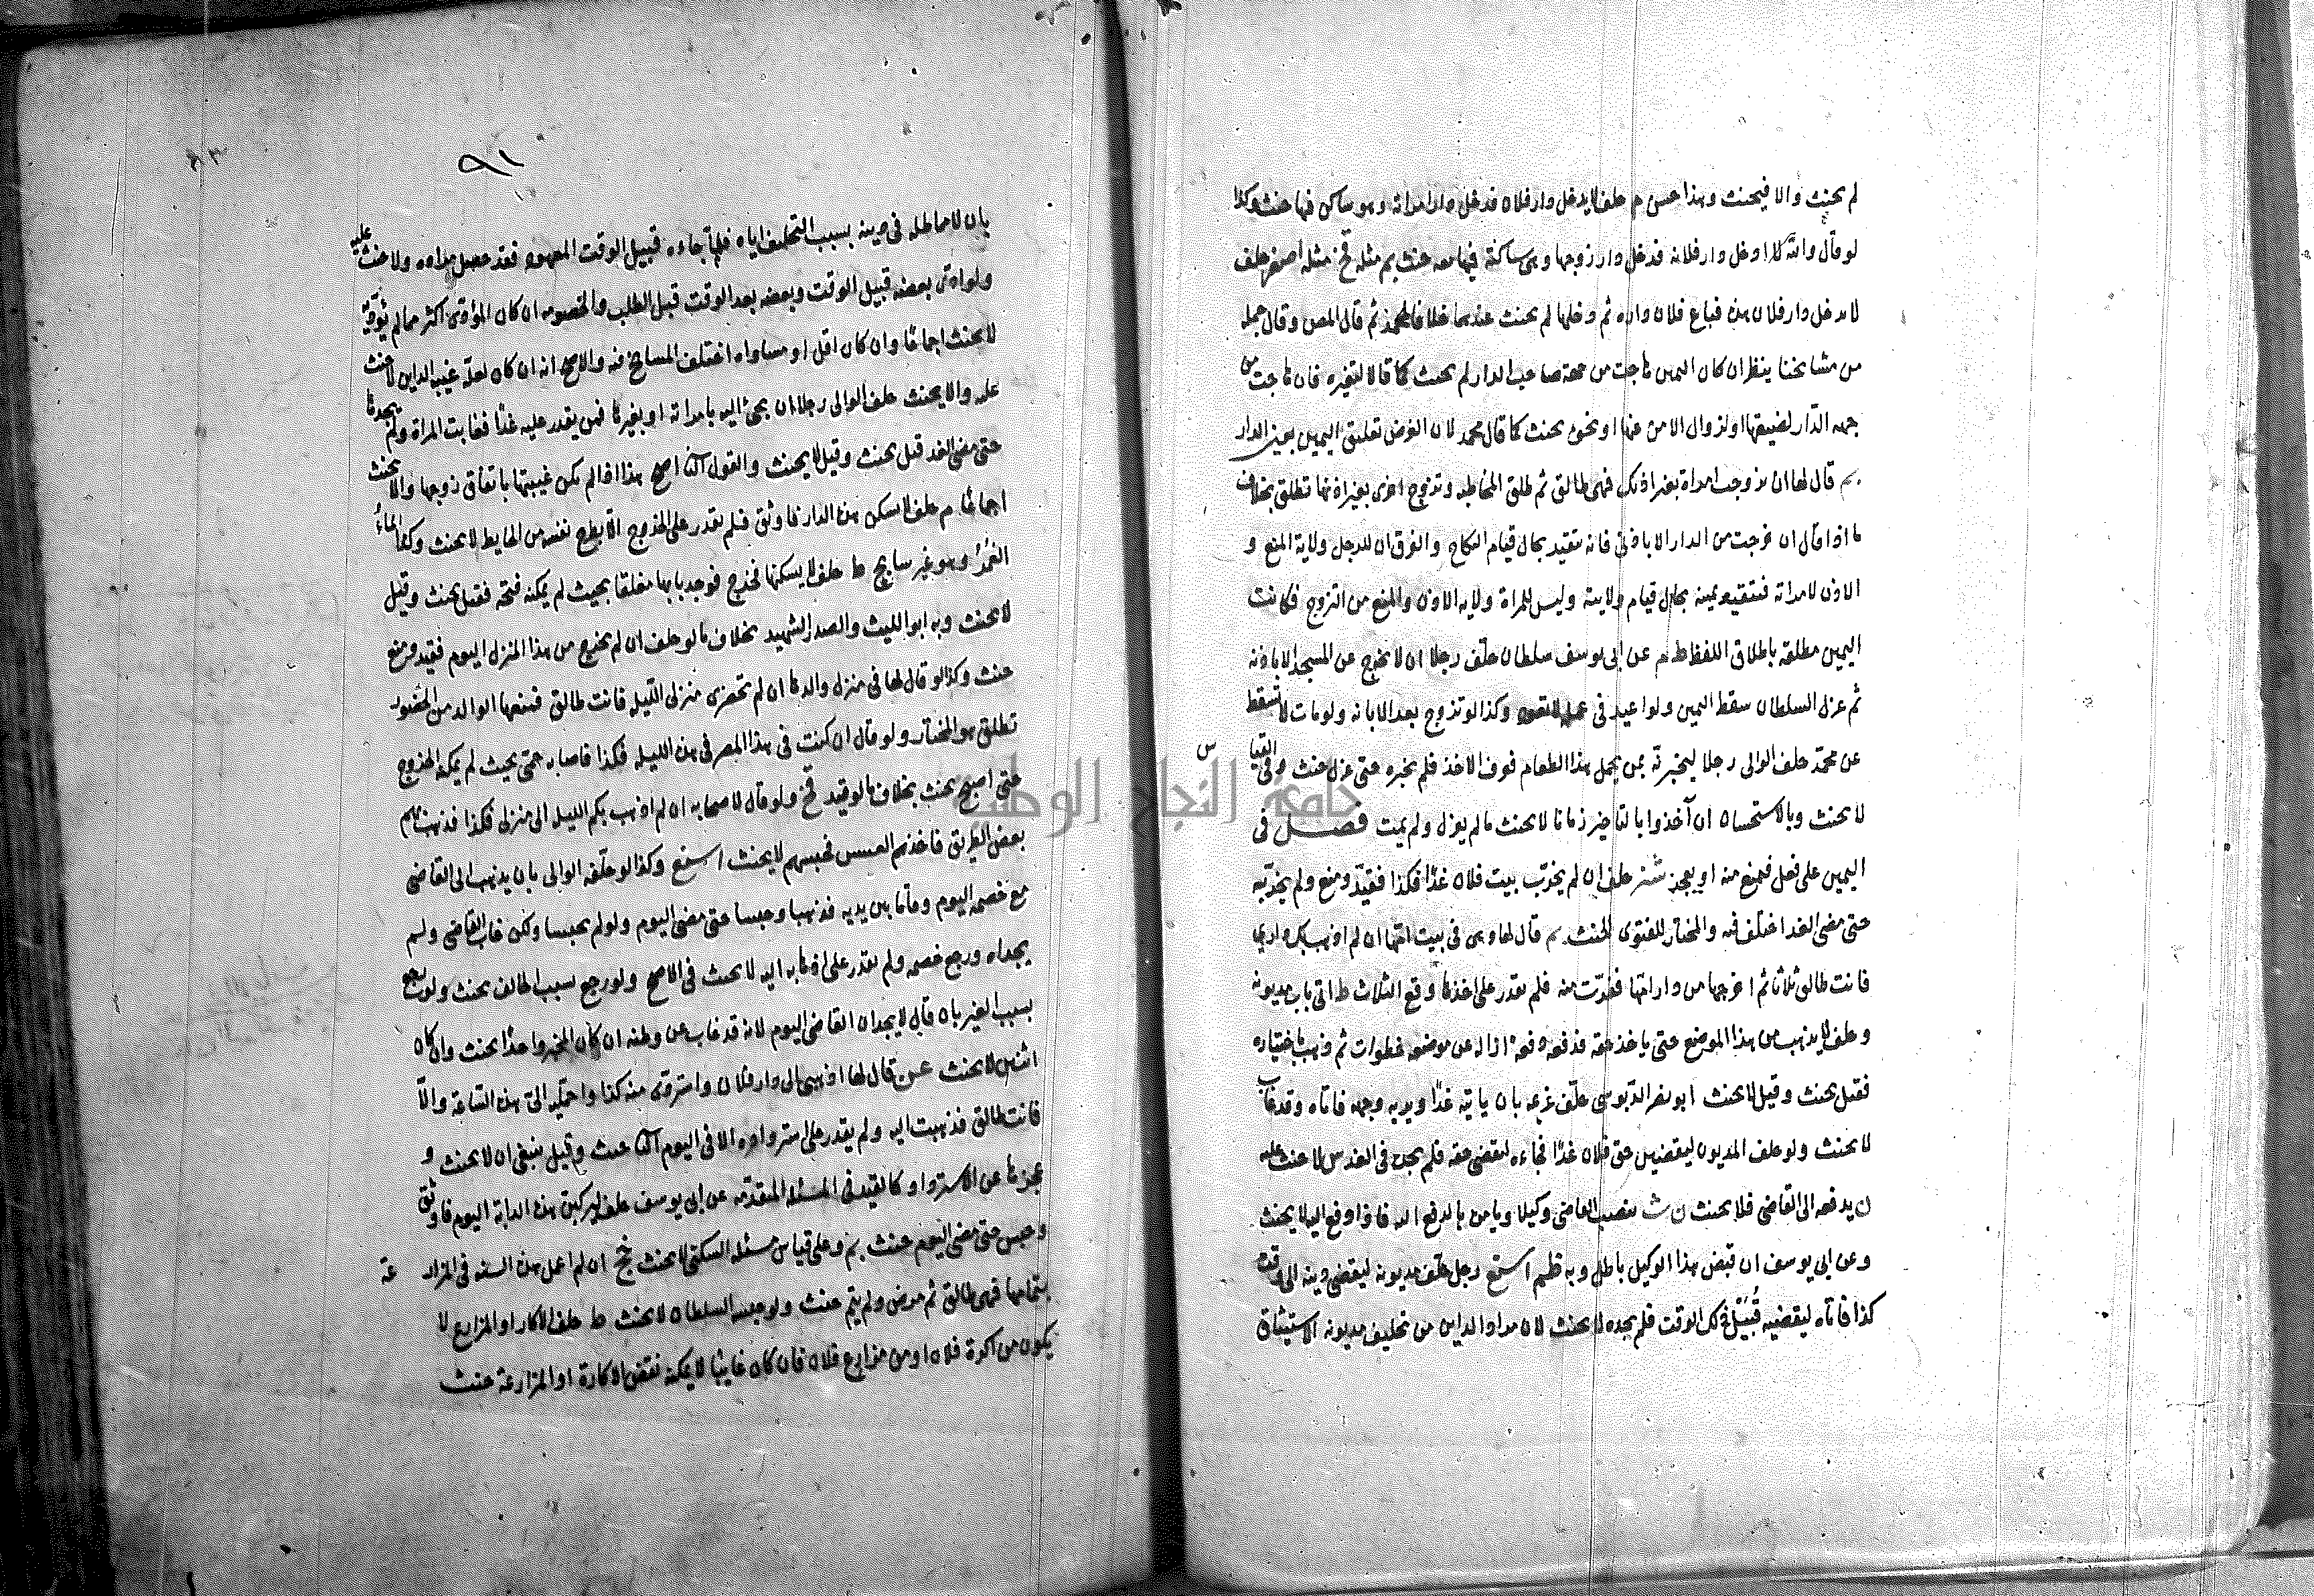 لم يحنث والا فيحنث وهذا حسن م حلف لا يدخل دار فلان فدخل دار امراته وهو ساكن فيها حنث وكذا
لو قال والله لا ادخل دار فلانة فدخل دار زوجها وهى ساكنة فيها معه حنث بم مثله قخ مثله اصغر حلف
لا يدخل دار فلان هذه فباع فلان داره ثم دخلها لم يحنث عندهما خلافا لمحمد ثم قال المص وقال جملة
من مشايخنا ينظر ان كان اليمين هاجت من جهة صاحب الدار لم يحنث كما قالا لتغيره فان هاجت من
جهة الدار لضيقها او لزوال الامن عنها او نحوه يحنث كما قال محمد لان الغرض تعليق اليمين بعين الدار
بم قال لها ان تزوجت امراة بغير اذنك فهى طالق ثم طلق المخاطبة وتزوج اخرى بغير اذنها تطلق بخلاف
ما اذا قال ان خرجت من الدار الا باذنى فانه يتقيد بحال قيام النكاح والفرق ان للرجل ولاية المنع و
الاذن لامراته فتتقيد يمينه بحال قيام ولايته وليس للمراة ولاية الاذن والمنع من التزوج فكانت
اليمين مطلقة باطلاق اللفظ ط م عن ابى يوسف سلطان حلف رجلا ان لا يخرج عن المسجد الا باذنه
ثم عزل السلطان سقط اليمين ولو اعيد فى عمله لا تعود وكذا لو تزوج بعد الابانة ولو مات لا تسقط
عن محمد حلف الوالى رجلا ليخبرنه بمن يحمل هذا الطعام فوف الاخذ فلم يخبره حتى عزل حنث وفى القياس
لا يحنث وبالاستحسان ان آخذوا بالتاخير زمانا لا يحنث ما لم يعزل ولم يمت فصل فى
اليمين على فعل فمنع منه او يعجز شنر حلف ان لم يخرب بيت فلان غدا فكذا فقيد ومنع ولم يخربه
حتى مضى الغد اختلف فيه والمختار للفتوى الحنث بم قال لها وهى فى بيت امها ان لم اذهب بك دارى
فانت طالق ثلاثا ثم اخرجها من دار امها ففرت منه فلم يقدر على اخذها وقع الثلاث ط اتى باب مديونه
وحلف لا يذهب من هذا الموضع حتى ياخذ حقه فدفعه دفعة ازاله عن موضعه خطوات ثم ذهب باختياره
فقيل يحنث وقيل لا يحنث ابو نصر الدبوسى حلف غريمه بان ياتيه غدا ويريه وجهه فاتاه وقد غاب
لا يحنث ولو حلف المديون ليقضين حق فلان غدا فجاءه ليقضى حقه فلم يجده فى الغد س لا حنث عليه
ن يدفعه الى القاضى فلا يحنث ن ث ينصب القاضى وكيلا ويامره بالدفع اليه فاذا دفع اليه لا يحنث
وعن ابى يوسف ان قبض هذا الوكيل باطل وبه ظم اسنع رجل حلف مديونه ليقضى دينه الى وقت
كذا فاتاه ليقضيه قُبَيْل ذلك الوقت فلم يجده لا يحنث لان مراد الداين من تحليف مديونه الاستيثاق
٩١
بان لا مماطله فى دينه بسبب التحليف اياه فلما جاءه قبيل الوقت المعهود فقد حصل مراده ولا حنث عليه
ولو ادى بعضه قبيل الوقت وبعضه بعد الوقت قبل الطلب والخصومة ان كان المؤدى اكثر مما لم يؤد
لا يحنث اجماعا وان كان اقل او مساواه اختلف المشايخ فيه والاصح انه ان كان لعلة غيبة الداين لا حنث
عليه والا يحنث حلف الوالى رجلا ان يجئ اليه بامراته او بغيرها فمن يقدر عليه غدا فغابت المراة ولم يجدها
حتى مضى الغد قيل يحنث وقيل لا يحنث والقول الثا اصح هذا اذا لم يكن غيبتها باتفاق زوجها والا يحنث
اجماعا م حلف لا يسكن هذه الدار فاوثق فلم يقدر على الخروج الا بطرح نفسه من الحايط لا يحنث وكذا الماءُ
الغَمْرُ وهو غير سابح ط حلف لا يسكنها فخرج فوجد بابها مغلقا بحيث لم يمكنه فتحه فقيل يحنث وقيل
لا يحنث وبه ابو الليث والصدر الشهيد بخلاف ما لو حلف ان لم يخرج من هذا المنزل اليوم فقيد ومنع
حنث وكذا لو قال لها فى منزل والدها ان لم تحضرى منزلى الليلة فانت طالق فمنعها الوالد من الحضور
تطلق هو المختار ولو قال ان كنت فى هذا المصر فى هذه الليلة فكذا فاصابه حمى بحيث لم يمكنه الخروج
حتى اصبح يحنث بخلاف ما لو قيد قخ ولو قال لاصحابه ان لم اذهب بكم الليلة الى منزلى فكذا فذهب بهم
بعض الطريق فاخذهم العسس فحبسهم لا يحنث اسنع وكذا لو حلفه الوالى بان يذهب الى القاضى
مع خصمه اليوم وقاما بين يديه فذهبا وحبسا حتى مضى اليوم ولو لم يحبسا ولكن غاب القاضى ولم
يجداه ورجع خصمه ولم يقدر على اذهابه اليه لا يحنث فى الاصح ولو رجع بسبب الحالف يحنث ولو رجع
بسبب الغير بان قال لا يجدان القاضى اليوم لانه قد غاب عن وطنه ان كان المخبر واحدا يحنث وان كان
اثنين لا يحنث عن قال لها اذهبى الى دار فلان واستردى منه كذا واحمليه الى هذه الساعة والا
فانت طالق فذهبت اليه ولم يقدر على استرداده الا فى اليوم الثا حنث وقيل ينبغى ان لا يحنث و
عجزها عن الاسترداد كالقيد فى المسئلة المتقدمة عن ابى يوسف حلف ليركبن هذه الدابة اليوم فاوثق
وحبس حتى مضى اليوم حنث بم وعلى قياس مسئلة السكنى لا يحنث نجخ ان لم اعمل هذه السنة فى المزارعة
بتمامها فهى طالق ثم مرض ولم يتم حنث ولو حبسه السلطان لا يحنث ط حلف الاكار او المزارع لا
يكون من اكرة فلان او من مزارع فلان فان كان غايبا لا يمكنه نقض الاكارة او المزارعة حنث